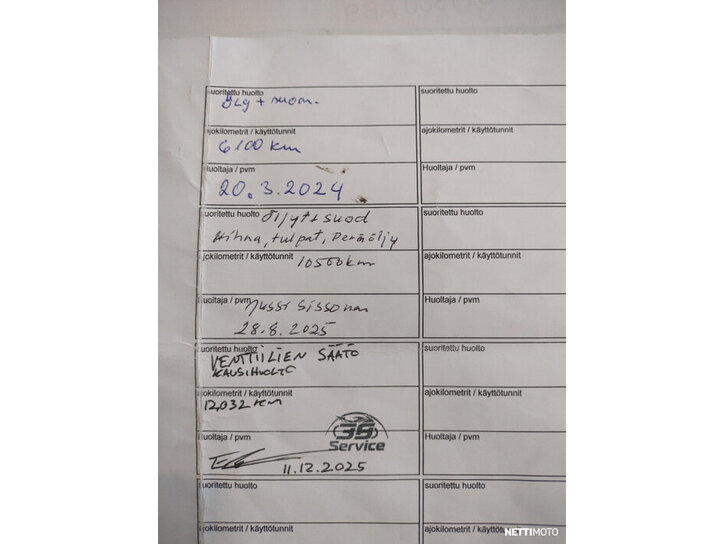 suoritettu huolto
Ölj + suom.
ajokilometrit / käyttötunnit
6100 km
Huoltaja / pvm
20.3.2024
suoritettu huolto Öljyt+suod
Hihna, tulpat, Peräöljy
ajokilometrit / käyttötunnit 10500km
Huoltaja / pvm Jussi Sissonen
28.8.2025
suoritettu huolto
VENTTIILIEN SÄÄTÖ
KAUSIHUOLTO
ajokilometrit / käyttötunnit
12,032 km
Huoltaja / pvm
3S
Service
11.12.2025
suoritettu huolto
ajokilometrit / käyttötunnit
suoritettu huolto
ajokilometrit / käyttötunnit
Huoltaja / pvm
suoritettu huolto
ajokilometrit / käyttötunnit
Huoltaja / pvm
suoritettu huolto
ajokilometrit / käyttötunnit
Huoltaja / pvm
suoritettu huolto
ajokilometrit / käyttötunnit
NETTIMOTO